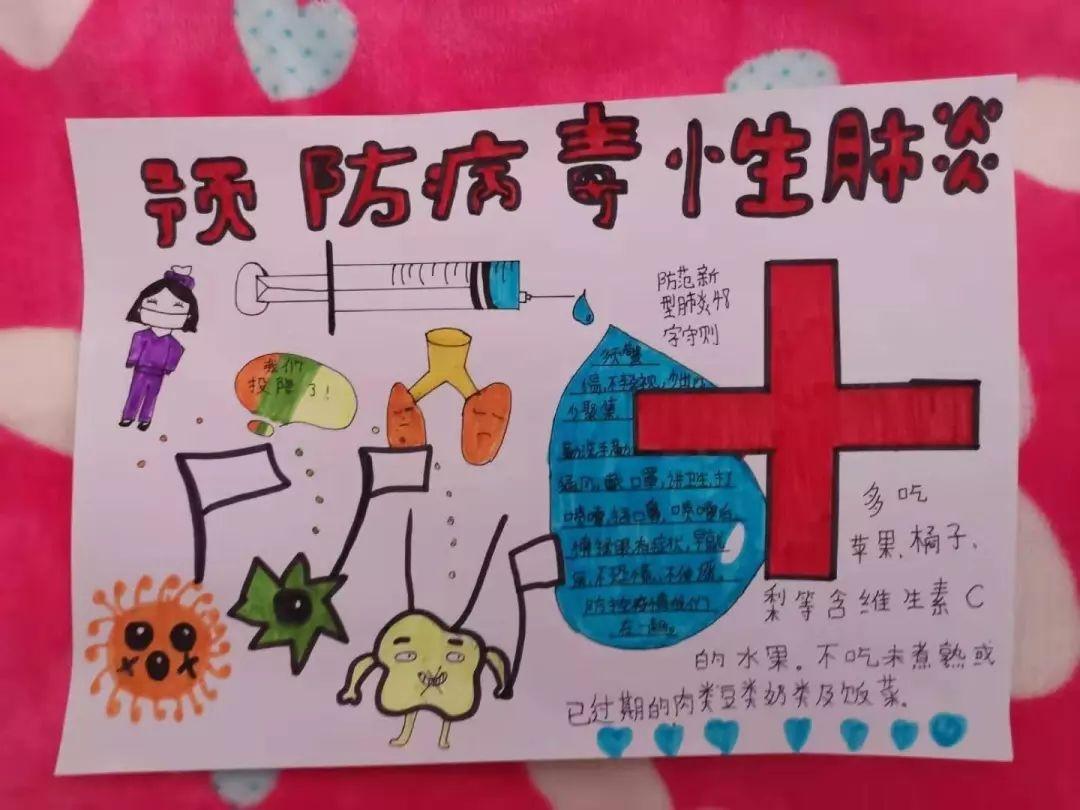 预防病毒性肺炎
防范新
型肺炎48
字守则
我们
投降了！
预警
温，不轻视，
少聚集，
勤洗手勤
通风，戴口罩，讲卫生，打
喷嚏，捂口鼻，喷嚏后，
慎揉眼，有症状，早就
医，不恐慌，不传谣，
防控疫情我们
在一起。
多吃
苹果、橘子、
梨等含维生素C
的水果。不吃未煮熟或
已过期的肉类豆类奶类及饭菜。